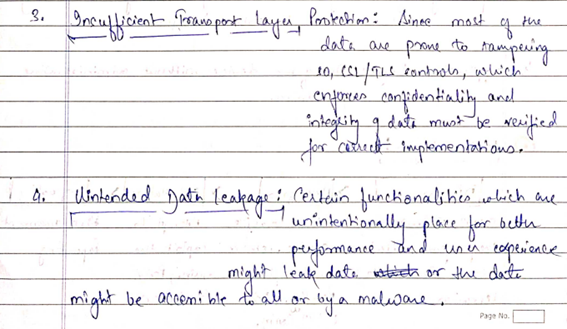 3. Insufficient Transport Layer Protection: Since most of the
data are prone to tampering
so, CSL/TLS controls, which
enforces confidentiality and
integrity of data must be verified
for correct implementations.
4. Uintended Data Leakage: Certain functionalities which are
unintentionally place for better
performance and user experience
might leak data which or the data
might be accessible to all or by a malware.
Page No.